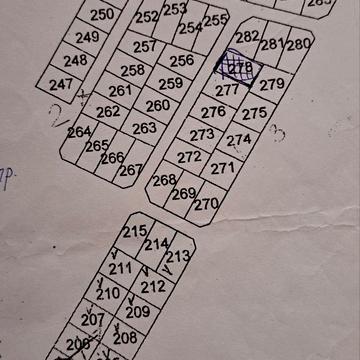 250
252
253
254
255
282
281
280
249
257
256
278
248
258
259
277
279
247
261
260
276
275
262
263
273
274
264
265
266
267
272
271
268
269
270
2
3
215
214
213
211
212
210
209
207
208
206